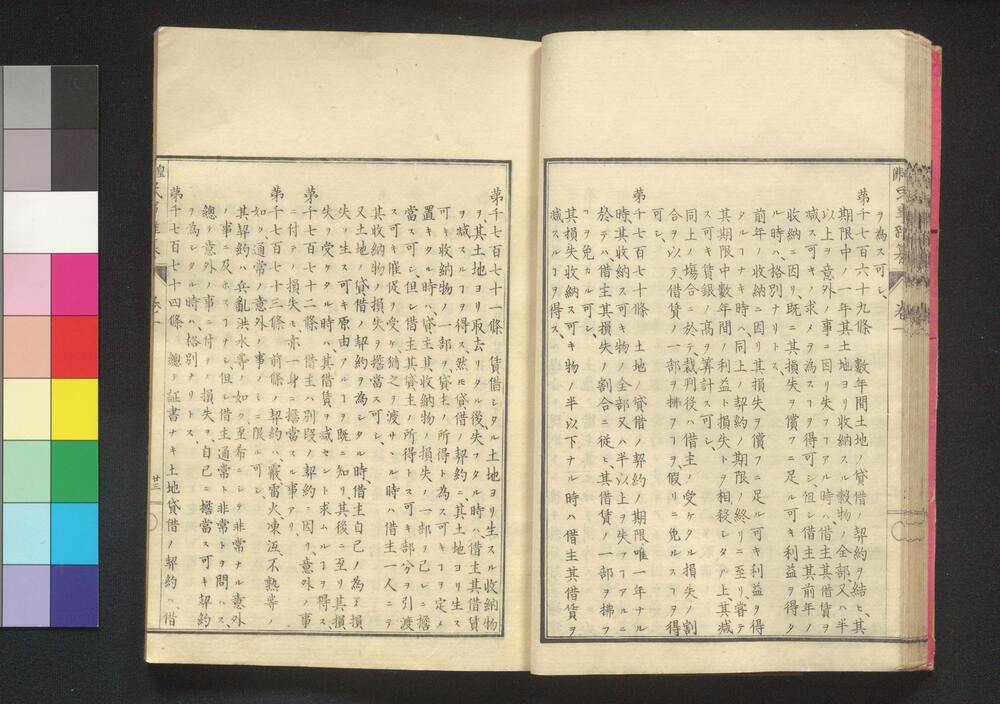 ヲ為ス可シ、
第千七百六十九條 數年間土地ノ貸借ノ契約ヲ結ヒ、其
期限中ノ一年其土地ヨリ收納スル穀物ノ全部、又ハ半
以上ヲ意外ノ事ニ因リ失フヿアル時ハ、借主其借賃ヲ
減ス可キノ求メヲ為スヿヲ得可シ、但シ借主其前年ノ
收納ニ因リ、既ニ其損失ヲ償フニ足ル可キ利益ヲ得タ
ル時ハ、格別ナリトス、
前年ノ收納ニ因リ其損失ヲ償フニ足ル可キ利益ヲ得
タルヿナキ時ハ、同上ノ契約ノ期限ノ終リニ至リ、嘗テ
其期限中數年間ノ利益ト損失トヲ相殺シタル上、其減
ス可キ賃銀ノ高ヲ筭計ス可シ、
同上ノ場合ニ於テ、裁判役ハ借主ノ受ケタル損失ノ割
合ヲ以テ、借賃ノ一部ヲ拂フヿヲ、假リニ免ルスヿヲ得
可シ、
第千七百七十條 土地ノ貸借ノ契約ノ期限、唯一年ナル
時其收納ス可キ物ノ全部又ハ半以上ヲ失フヿアルニ
於テハ、借主其損失ノ割合ニ従ヒ、其借賃ノ一部ヲ拂フ
ヿヲ免カル可シ、
其損失收納ス可キ物ノ半以下ナル時ハ借主其借賃ヲ
減スルヿヲ得ス、
第千七百七十一條 賃借シタル土地ヨリ生スル收納物
ヲ、其土地ヨリ取去リタル後、失フタル時ハ、借主其借賃
ヲ減スルヿヲ得ス、然モ貸借ノ契約ニ、其土地ヨリ生ス
可キ收納物ノ一部ヲ、貸主ノ所得ト為ス可キヿヲ定メ
置キタル時ハ、貸主其收納物ノ損失ノ一部ヲ己レニ擔
當ス可シ、但シ借主其貸主ノ所得トス可キ部分ヲ引渡
ス可キ催促ヲ受ケ、猶之ヲ渡サヽル時ハ借主一人ニテ
其收納物ノ損失ヲ擔當ス可シ、
又土地ノ貸借ノ契約ヲ為シタル時、借主自己ノ為メ損
失ヲ生ス可キ原由アルヿヲ既ニ知リ、其後ニ至リ其損
失ヲ受ケタル時ハ、其借賃ヲ減セント求ムルヿヲ得ス、
第千七百七十二條 借主ハ別段ノ契約ニ因リ、意外ノ事
ニ付テノ損失モ亦一身ニ擔當スル事アリ、
第千七百七十三條 前條ノ契約ハ、霰雷火凍冱不熟等ノ
如ク通常ノ意外ノ事ノミニ限ル可シ、
其契約ハ兵亂洪水等ノ如ク至希ニシテ非常ナル意外
ノ事ニ及ホスヿナシ、但シ借主通常ト非常トヲ問ハス、
總テ意外ノ事ニ付テノ損失ヲ、自己ニ擔當ス可キ契約
ヲ為シタル時ハ、格別ナリトス、
第千七百七十四條 總テ証書ナキ土地貸借ノ契約ハ、借
卷一
廿三